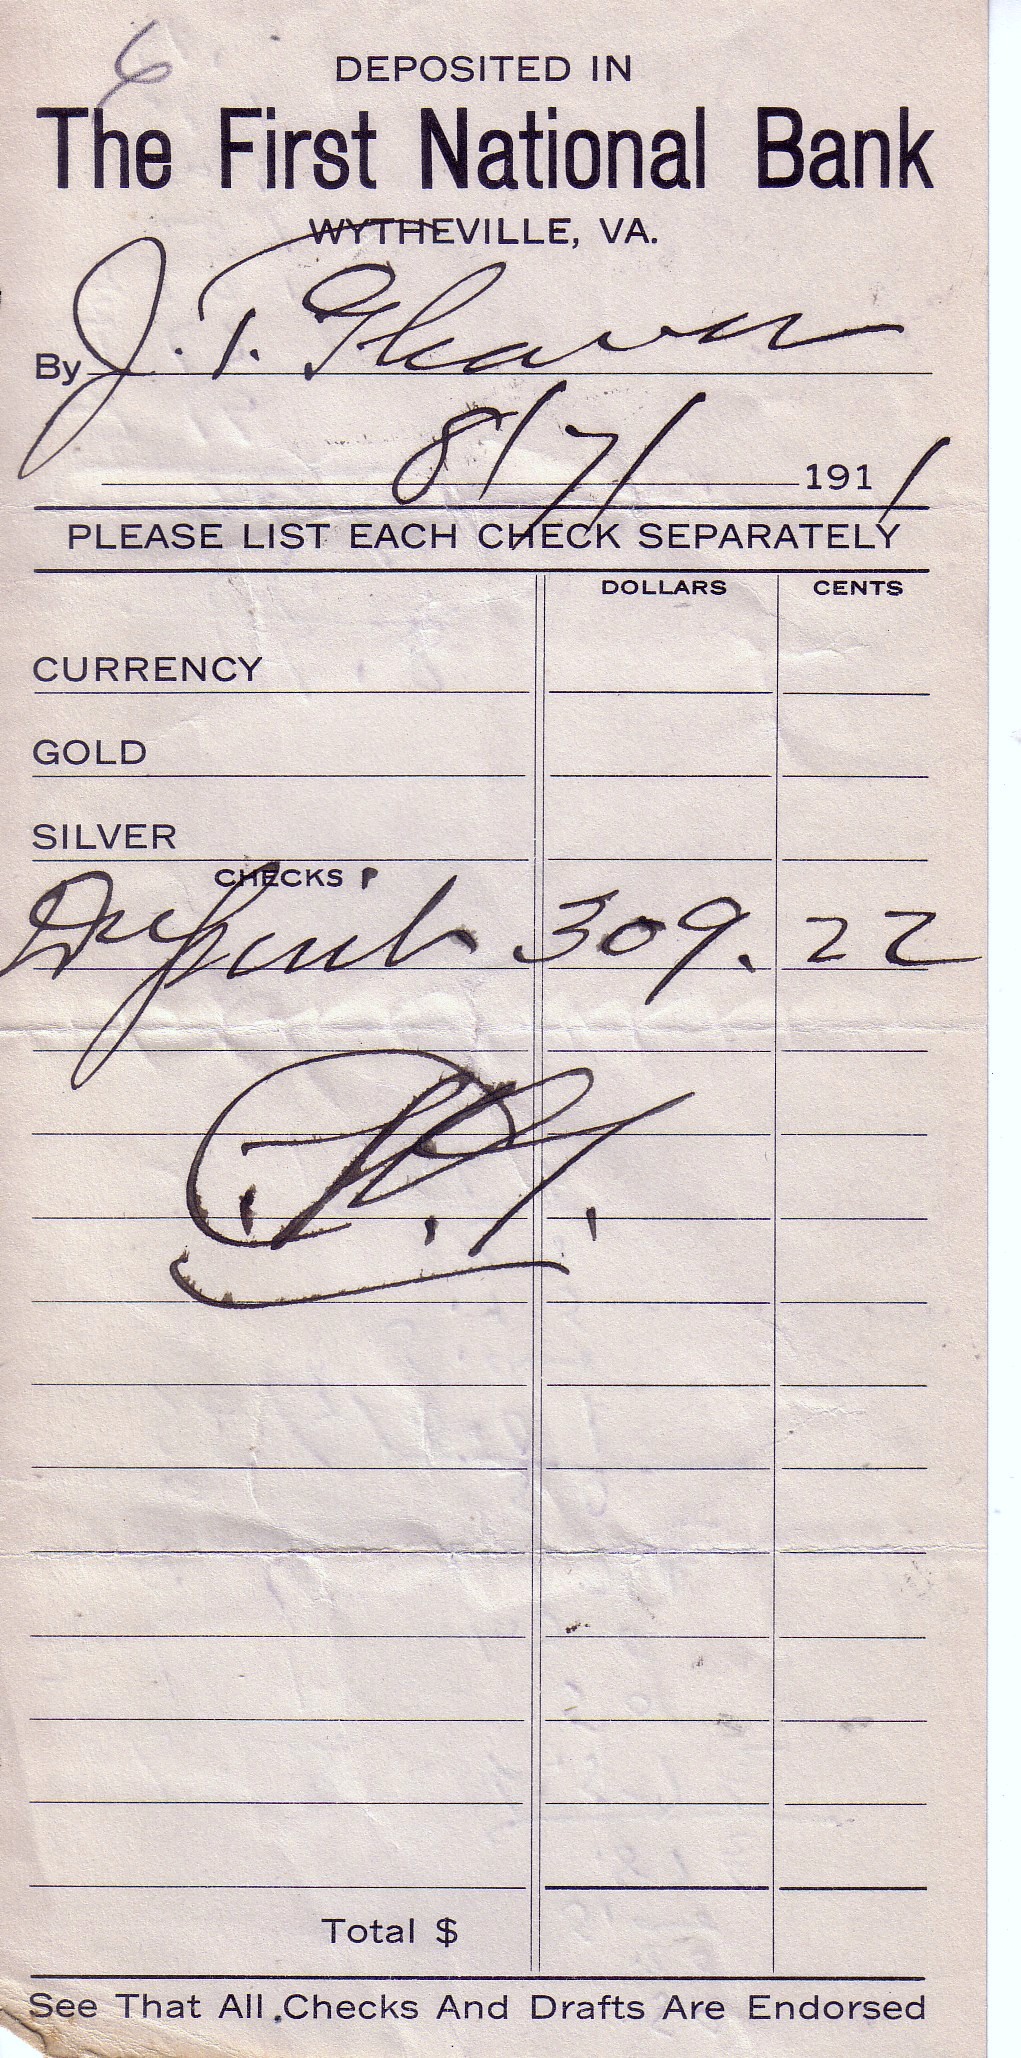 6
DEPOSITED IN
The First National Bank
WYTHEVILLE, VA.
By J. T.
8/7/ 1911
PLEASE LIST EACH CHECK SEPARATELY
DOLLARS CENTS
CURRENCY
GOLD
SILVER
CHECKS
309. 22
Total $
See That All Checks And Drafts Are Endorsed